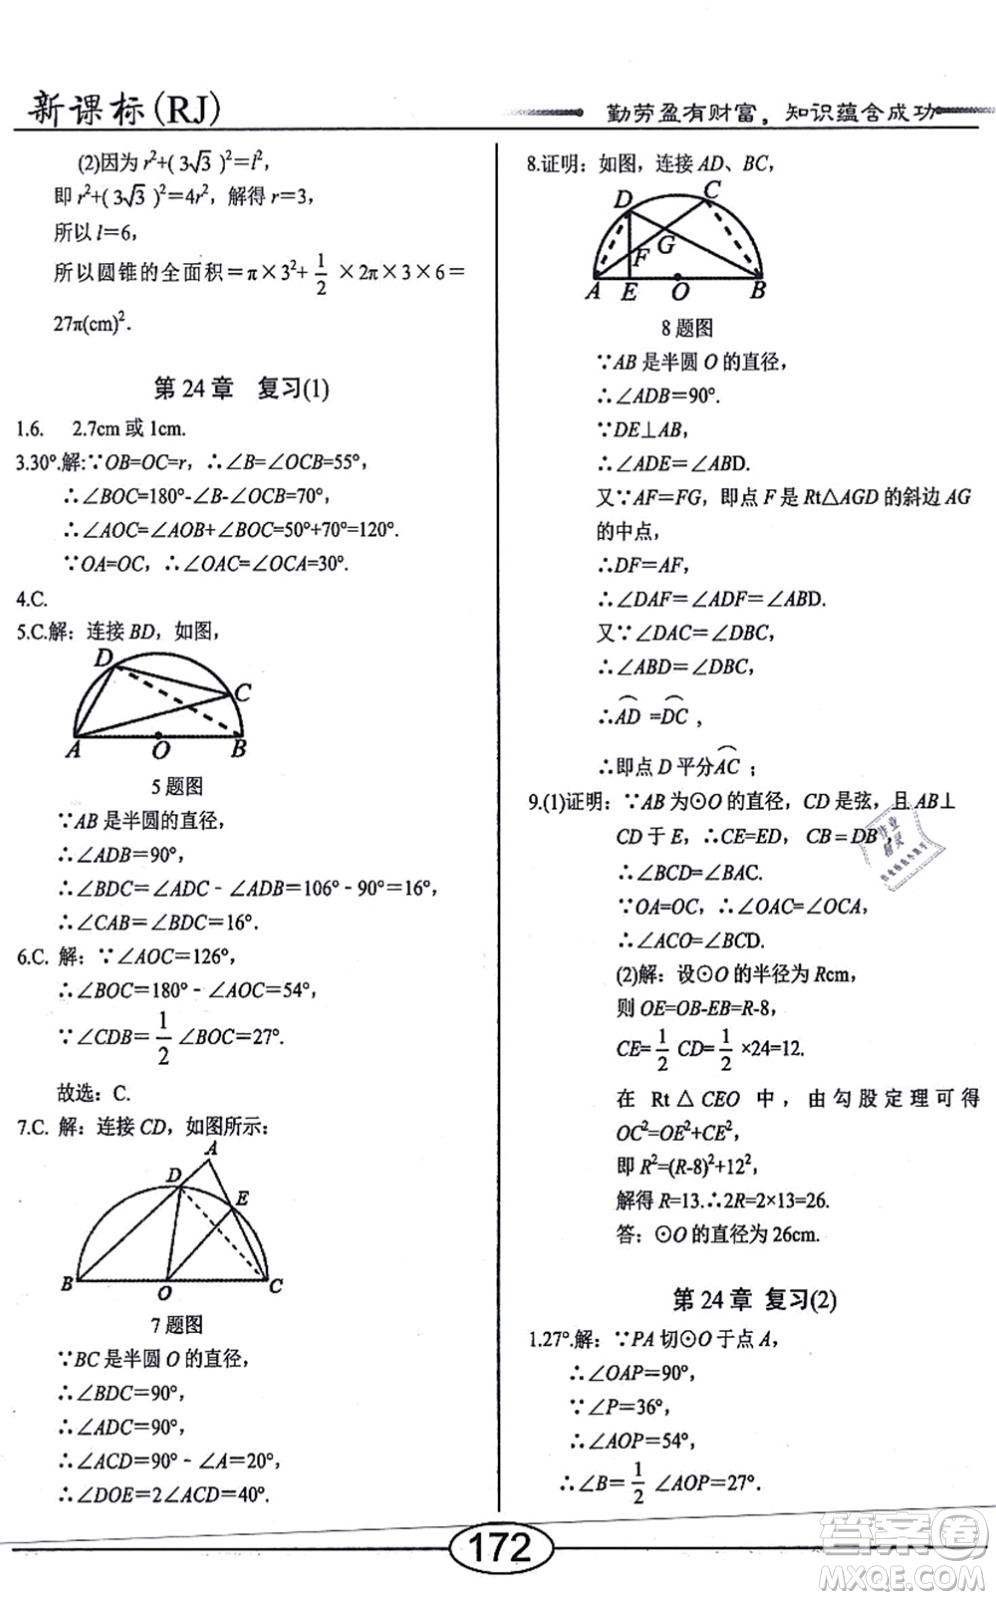 新课标(RJ)
勤劳盈有财富，知识蕴含成功
(2)因为 r²+( 3√3 )²=l²，
即 r²+( 3√3 )²=4r²，解得 r=3，
所以 l=6，
所以圆锥的全面积=π×3²+ 1/2 ×2π×3×6=
27π(cm)².
第 24 章　复习(1)
1.6.　2.7cm 或 1cm.
3.30°.解:∵OB=OC=r，∴∠B=∠OCB=55°，
∴∠BOC=180°-∠B-∠OCB=70°，
∴∠AOC=∠AOB+∠BOC=50°+70°=120°.
∵OA=OC，∴∠OAC=∠OCA=30°.
4.C.
5.C.解：连接 BD，如图，
D
C
A O B
5 题图
∵AB 是半圆的直径，
∴∠ADB=90°，
∴∠BDC=∠ADC－∠ADB=106°－90°=16°，
∴∠CAB=∠BDC=16°.
6.C. 解：∵∠AOC=126°，
∴∠BOC=180°－∠AOC=54°，
∵∠CDB= 1/2 ∠BOC=27°.
故选：C.
7.C. 解：连接 CD，如图所示：
A
D
E
B O C
7 题图
∵BC 是半圆 O 的直径，
∴∠BDC=90°，
∴∠ADC=90°，
∴∠ACD=90°－∠A=20°，
∴∠DOE=2∠ACD=40°.
8.证明：如图，连接 AD、BC，
D C
F G
A E O B
8 题图
∵AB 是半圆 O 的直径，
∴∠ADB=90°.
∵DE⊥AB，
∴∠ADE=∠ABD.
又∵AF=FG，即点 F 是 Rt△AGD 的斜边 AG
的中点，
∴DF=AF，
∴∠DAF=∠ADF=∠ABD.
又∵∠DAC=∠DBC，
∴∠ABD=∠DBC，
∴A͡D =D͡C ，
∴即点 D 平分A͡C ；
9.(1)证明：∵AB 为⊙O 的直径，CD 是弦，且 AB⊥
CD 于 E，∴CE=ED， CB=DB，
∴∠BCD=∠BAC.
∵OA=OC，∴∠OAC=∠OCA，
∴∠ACO=∠BCD.
(2)解：设⊙O 的半径为 Rcm，
则 OE=OB-EB=R-8，
CE= 1/2 CD= 1/2 ×24=12.
在 Rt△CEO 中，由勾股定理可得
OC²=OE²+CE²，
即 R²=(R-8)²+12²，
解得 R=13.∴2R=2×13=26.
答：⊙O 的直径为 26cm.
第 24 章 复习(2)
1.27°.解：∵PA 切⊙O 于点 A，
∴∠OAP=90°，
∵∠P=36°，
∴∠AOP=54°，
∴∠B= 1/2 ∠AOP=27°.
172
答案卷
MXQE.COM